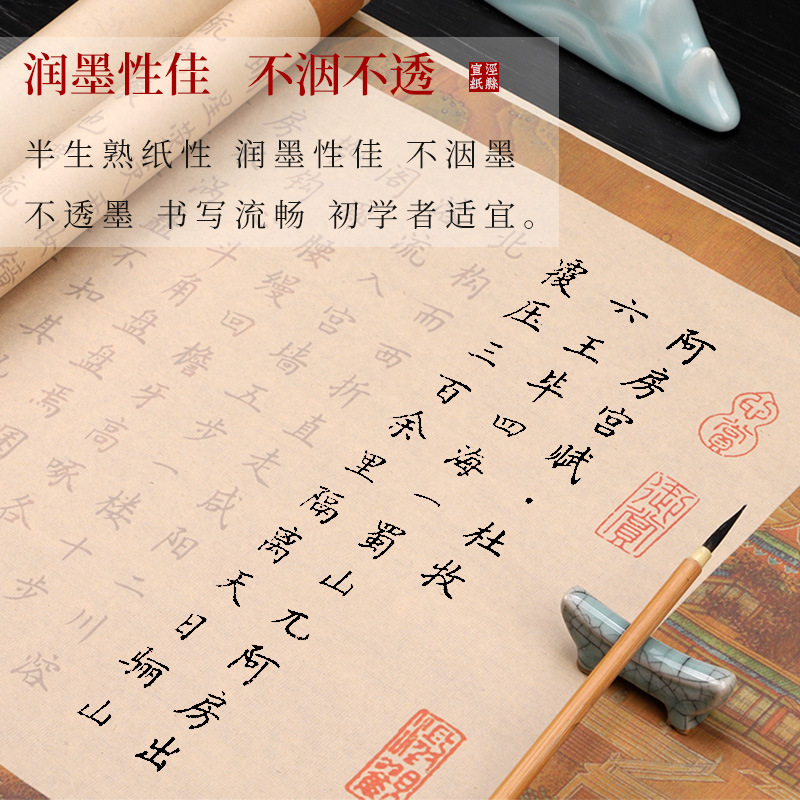 润墨性佳 不洇不透
涇縣
宣紙
半生熟纸性 润墨性佳 不洇墨
不透墨 书写流畅 初学者适宜。
阿房宫赋·杜牧
六王毕四海一蜀山兀阿房出
覆压三百余里隔离天日骊山
北构而西折直走咸阳二川溶
流入宫墙五步一楼十步
腰缦回檐牙高啄各
斗角盘盘焉囷
知其
御赏